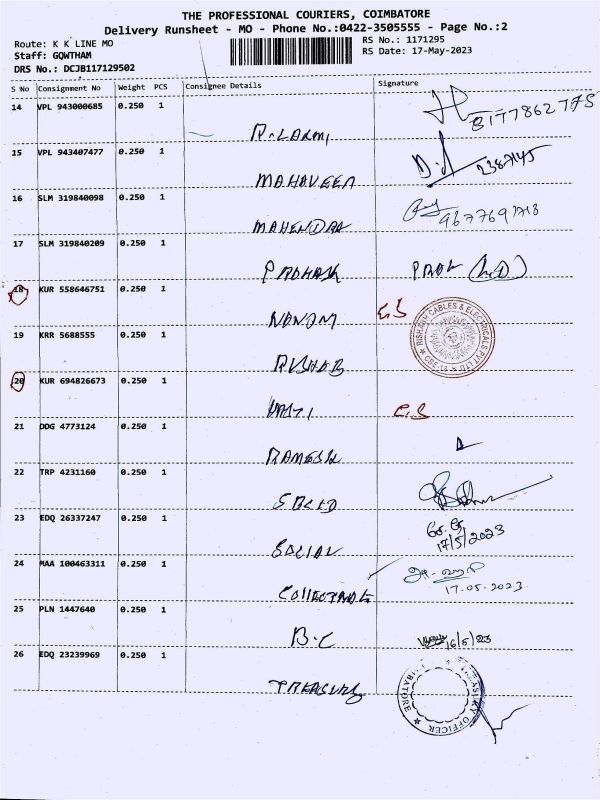 THE PROFESSIONAL COURIERS, COIMBATORE
Delivery Runsheet - MO - Phone No.:0422-3505555 - Page No.:2
Route: K K LINE MO
RS No.: 1171295
Staff: GOWTHAM
RS Date: 17-May-2023
DRS No.: DCJB117129502
S No Consignment No Weight PCS Consignee Details Signature
14 VPL 943000685 0.250 1
8177862775
15 VPL 943407477 0.250 1
MAHAVEER
16 SLM 319840098 0.250 1
9677691718
MAHENDRA
17 SLM 319840209 0.250 1
PRAKASH
18 KUR 558646751 0.250 1
C.S
19 KRR 5688555 0.250 1
RISHAB CABLES & ELECTRICALS PVT LTD
CBE-18
RISHAB
20 KUR 694826673 0.250 1
C.S
21 DDG 4773124 0.250 1
RAMESH
22 TRP 4231160 0.250 1
23 EDQ 26337247 0.250
17/5/2023
SOCIAL
24 MAA 100463311 0.250 1
17.05.2023
25 PLN 1447640 0.250 1
B.C
16/5/23
26 EDQ 23239969 0.250 1
TREASURY